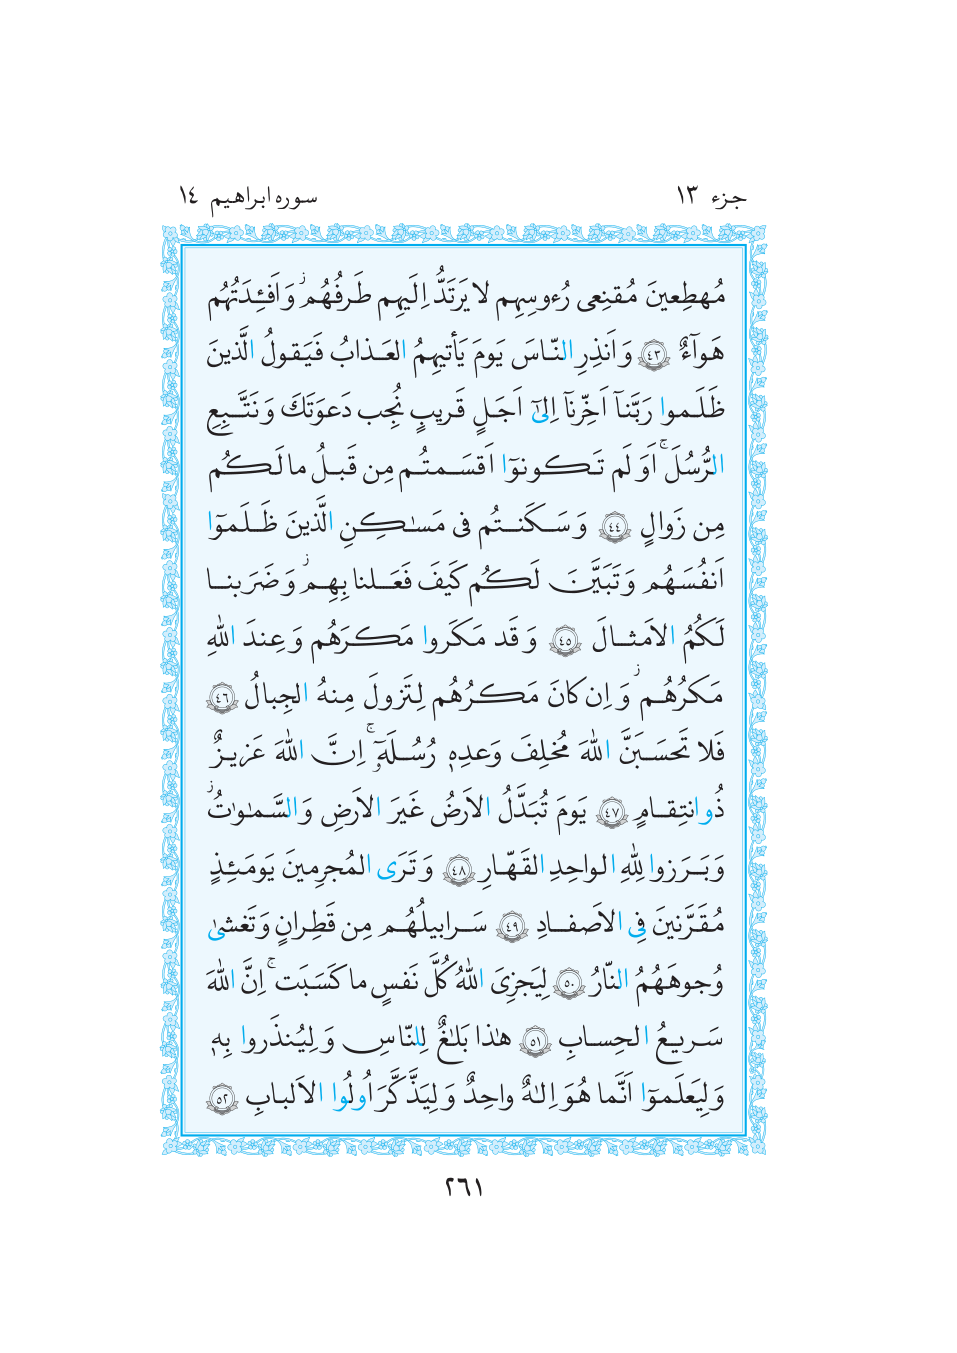 جزء ١٣
سوره ابراهیم ١٤
مُهطِعینَ مُقنِعی رُءوسِهِم لا یَرتَدُّ اِلَیهِم طَرفُهُم ۖ وَ اَفئِدَتُهُم
هَوآءٌ ﴿٤٣﴾ وَ اَنذِرِ النّاسَ یَومَ یَأتیهِمُ العَذابُ فَیَقولُ الَّذینَ
ظَلَموا رَبَّنآ اَخِّرنآ اِلیٰٓ اَجَلٍ قَریبٍ نُجِب دَعوَتَکَ وَ نَتَّبِعِ
الرُّسُلَ ۚ اَوَ لَم تَکونوٓا اَقسَمتُم مِن قَبلُ ما لَکُم
مِن زَوالٍ ﴿٤٤﴾ وَ سَکَنتُم فی مَسٰکِنِ الَّذینَ ظَلَموٓا
اَنفُسَهُم وَ تَبَیَّنَ لَکُم کَیفَ فَعَلنا بِهِم ۖ وَ ضَرَبنا
لَکُمُ الاَمثالَ ﴿٤٥﴾ وَ قَد مَکَروا مَکرَهُم وَ عِندَ اللهِ
مَکرُهُم ۖ وَ اِن کانَ مَکرُهُم لِتَزولَ مِنهُ الجِبالُ ﴿٤٦﴾
فَلا تَحسَبَنَّ اللهَ مُخلِفَ وَعدِهٖ رُسُلَهٗٓ ۚ اِنَّ اللهَ عَزیزٌ
ذُو انتِقامٍ ﴿٤٧﴾ یَومَ تُبَدَّلُ الاَرضُ غَیرَ الاَرضِ وَ السَّمٰوٰتُ ۖ
وَ بَرَزوا لِلّٰهِ الواحِدِ القَهّارِ ﴿٤٨﴾ وَ تَرَی المُجرِمینَ یَومَئِذٍ
مُقَرَّنینَ فِی الاَصفادِ ﴿٤٩﴾ سَرابیلُهُم مِن قَطِرانٍ وَ تَغشیٰ
وُجوهَهُمُ النّارُ ﴿٥٠﴾ لِیَجزِیَ اللهُ کُلَّ نَفسٍ ما کَسَبَت ۚ اِنَّ اللهَ
سَریعُ الحِسابِ ﴿٥١﴾ هٰذا بَلٰغٌ لِلنّاسِ وَ لِیُنذَروا بِهٖ
وَ لِیَعلَموٓا اَنَّما هُوَ اِلٰهٌ واحِدٌ وَ لِیَذَّکَّرَ اُولُوا الاَلبابِ ﴿٥٢﴾
٢٦١